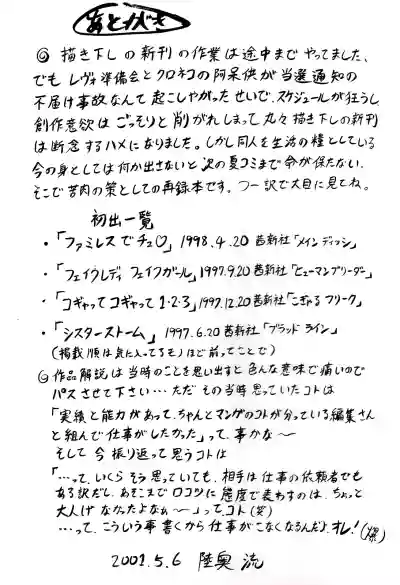 あとがき
◎ 描き下しの新刊の作業は途中までやってました、
でも レヴォ準備会とクロネコの阿呆供が当選通知の
不届け事故なんて起こしやがったせいで、スケジュールが狂うし
創作意欲はごっそりと削がれしまって丸々描き下しの新刊
は断念するハメになりました。しかし同人を生活の糧としている
今の身としては何か出さないと次の夏コミまで命が保たない、
そこで苦肉の策としての再録本です。つー訳で大目に見てね。
初出一覧
・「ファミレスでチュ♡」1998.4.20 茜新社「メインディッシュ」
・「フェイクレディ フェイクガール」1997.9.20 茜新社「ヒューマンブリーダー」
・「コギャってコギャって1・2・3」1997.12.20 茜新社「こぎゃるフリーク」
・「シスターストーム」1997.6.20 茜新社「ブラッドライン」
(掲載順は気に入ってるモノほど前ってことで)
◎作品解説は当時のことを思い出すと色んな意味で痛いので
パスさせて下さい…ただその当時思っていたコトは
「実績と能力があって、ちゃんとマンガのコトが分っている編集さん
と組んで仕事がしたかった」って、事かな〜
そして今振り返って思うコトは
「…って、いくらそう思っていても、相手は仕事の依頼者でも
ある訳だし、あそこまでロコツに態度で表わすのは、ちょっと
大人げなかったよなぁ〜」ってコト(笑)
…って、こういう事書くから仕事がこなくなるんだよ、オレ!(爆)
2001.5.6 陸奥 流